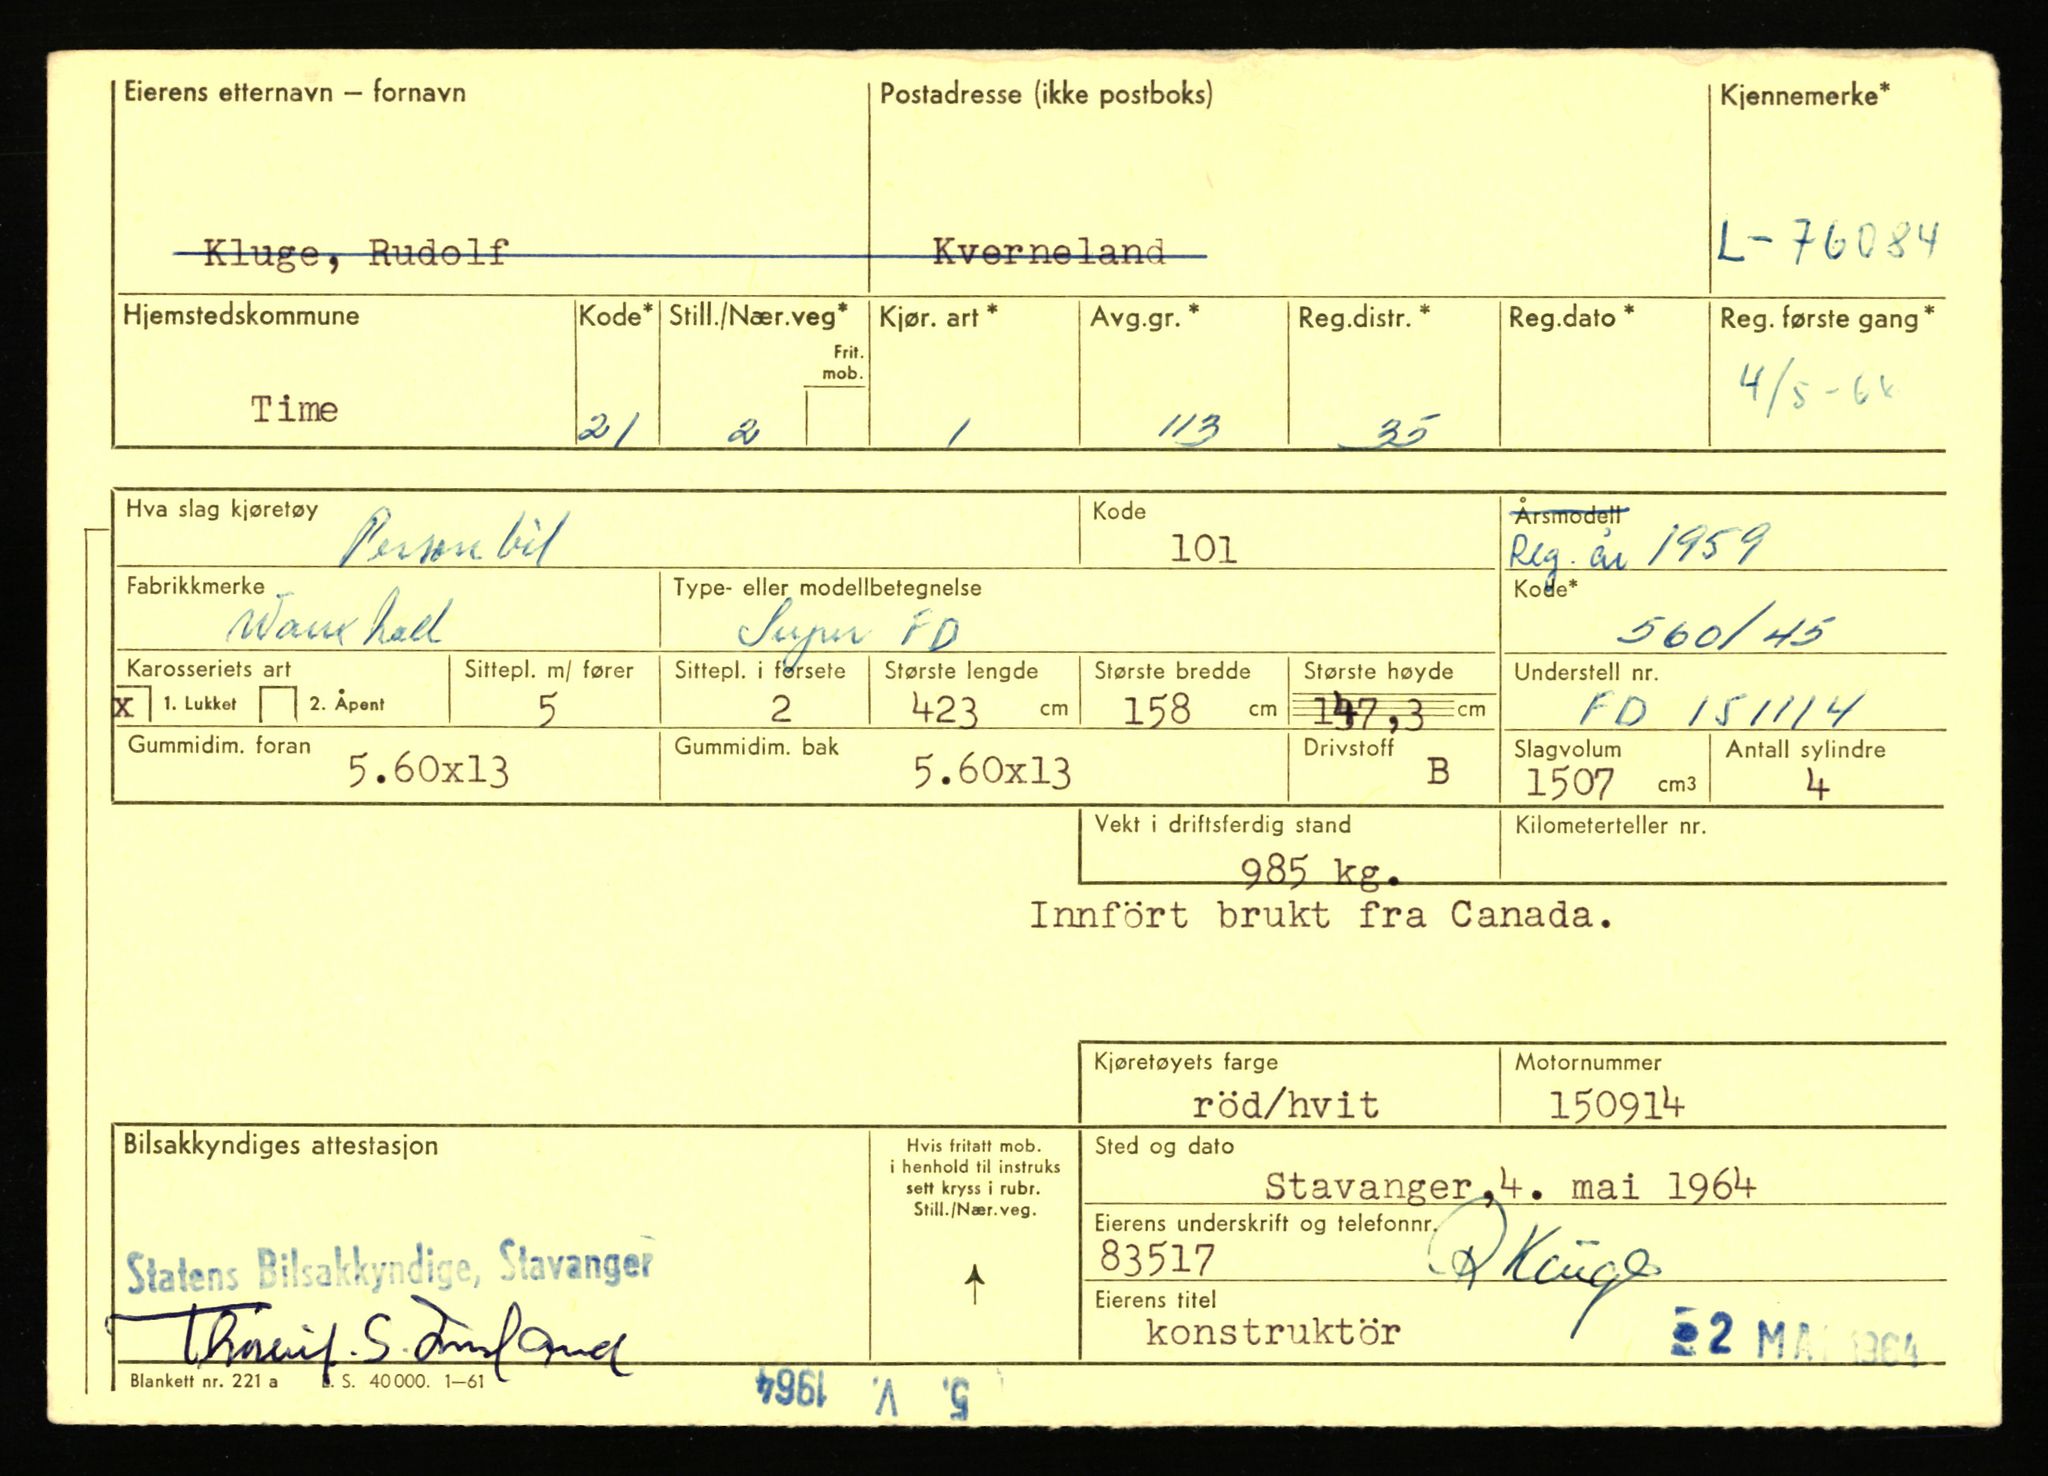 Eierens etternavn – fornavn Postadresse (ikke postboks) Kjennemerke*
Kluge, Rudolf Kverneland L-76084
Hjemstedskommune Kode* Still./Nær.veg* Kjør. art* Avg.gr.* Reg.distr.* Reg.dato* Reg. første gang*
Frit.
mob.
Time 21 2 1 113 35 4/5-64
Hva slag kjøretøy Kode Årsmodell
Personbil 101 Reg. år 1959
Fabrikkmerke Type- eller modellbetegnelse Kode*
Wauxhall Super FD 560/45
Karosseriets art Sittepl. m/ fører Sittepl. i forsete Største lengde Største bredde Største høyde Understell nr.
x 1. Lukket 2. Åpent 5 2 423 cm 158 cm 147,3 cm FD 151114
Gummidim. foran Gummidim. bak Drivstoff Slagvolum Antall sylindre
5.60x13 5.60x13 B 1507 cm3 4
Vekt i driftsferdig stand Kilometerteller nr.
985 kg.
Innfört brukt fra Canada.
Kjøretøyets farge Motornummer
röd/hvit 150914
Bilsakkyndiges attestasjon Hvis fritatt mob. Sted og dato
i henhold til instruks
sett kryss i rubr.
Still./Nær.veg.
Stavanger,4. mai 1964
Eierens underskrift og telefonnr.
83517 R Kluge
Statens Bilsakkyndige, Stavanger
Eierens titel
konstruktör
2 MAI 1964
Blankett nr. 221 a S. 40000. 1–61
5. V. 1964